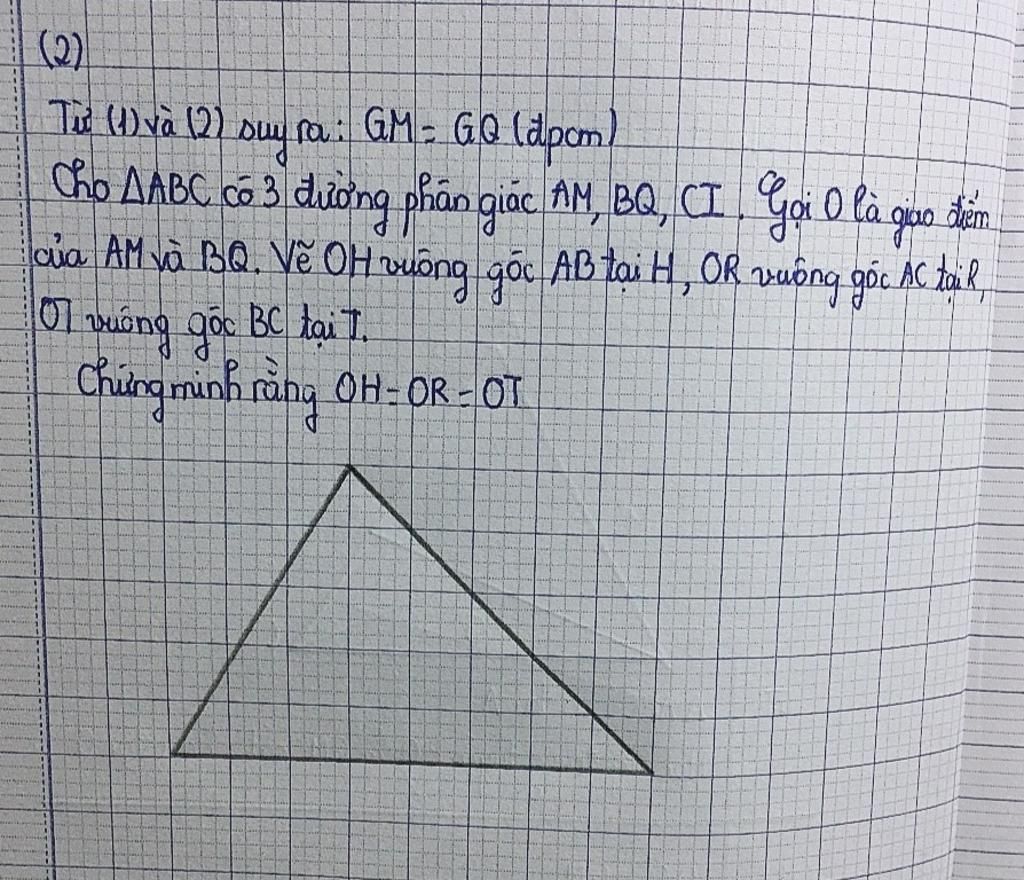 (2)
Từ (1) và (2) suy ra: GM = GQ (đpcm)
Cho ΔABC có 3 đường phân giác AM, BQ, CI. Gọi O là giao điểm
của AM và BQ. Vẽ OH vuông góc AB tại H, OR vuông góc AC tại R,
OT vuông góc BC tại T.
Chứng minh rằng OH = OR = OT